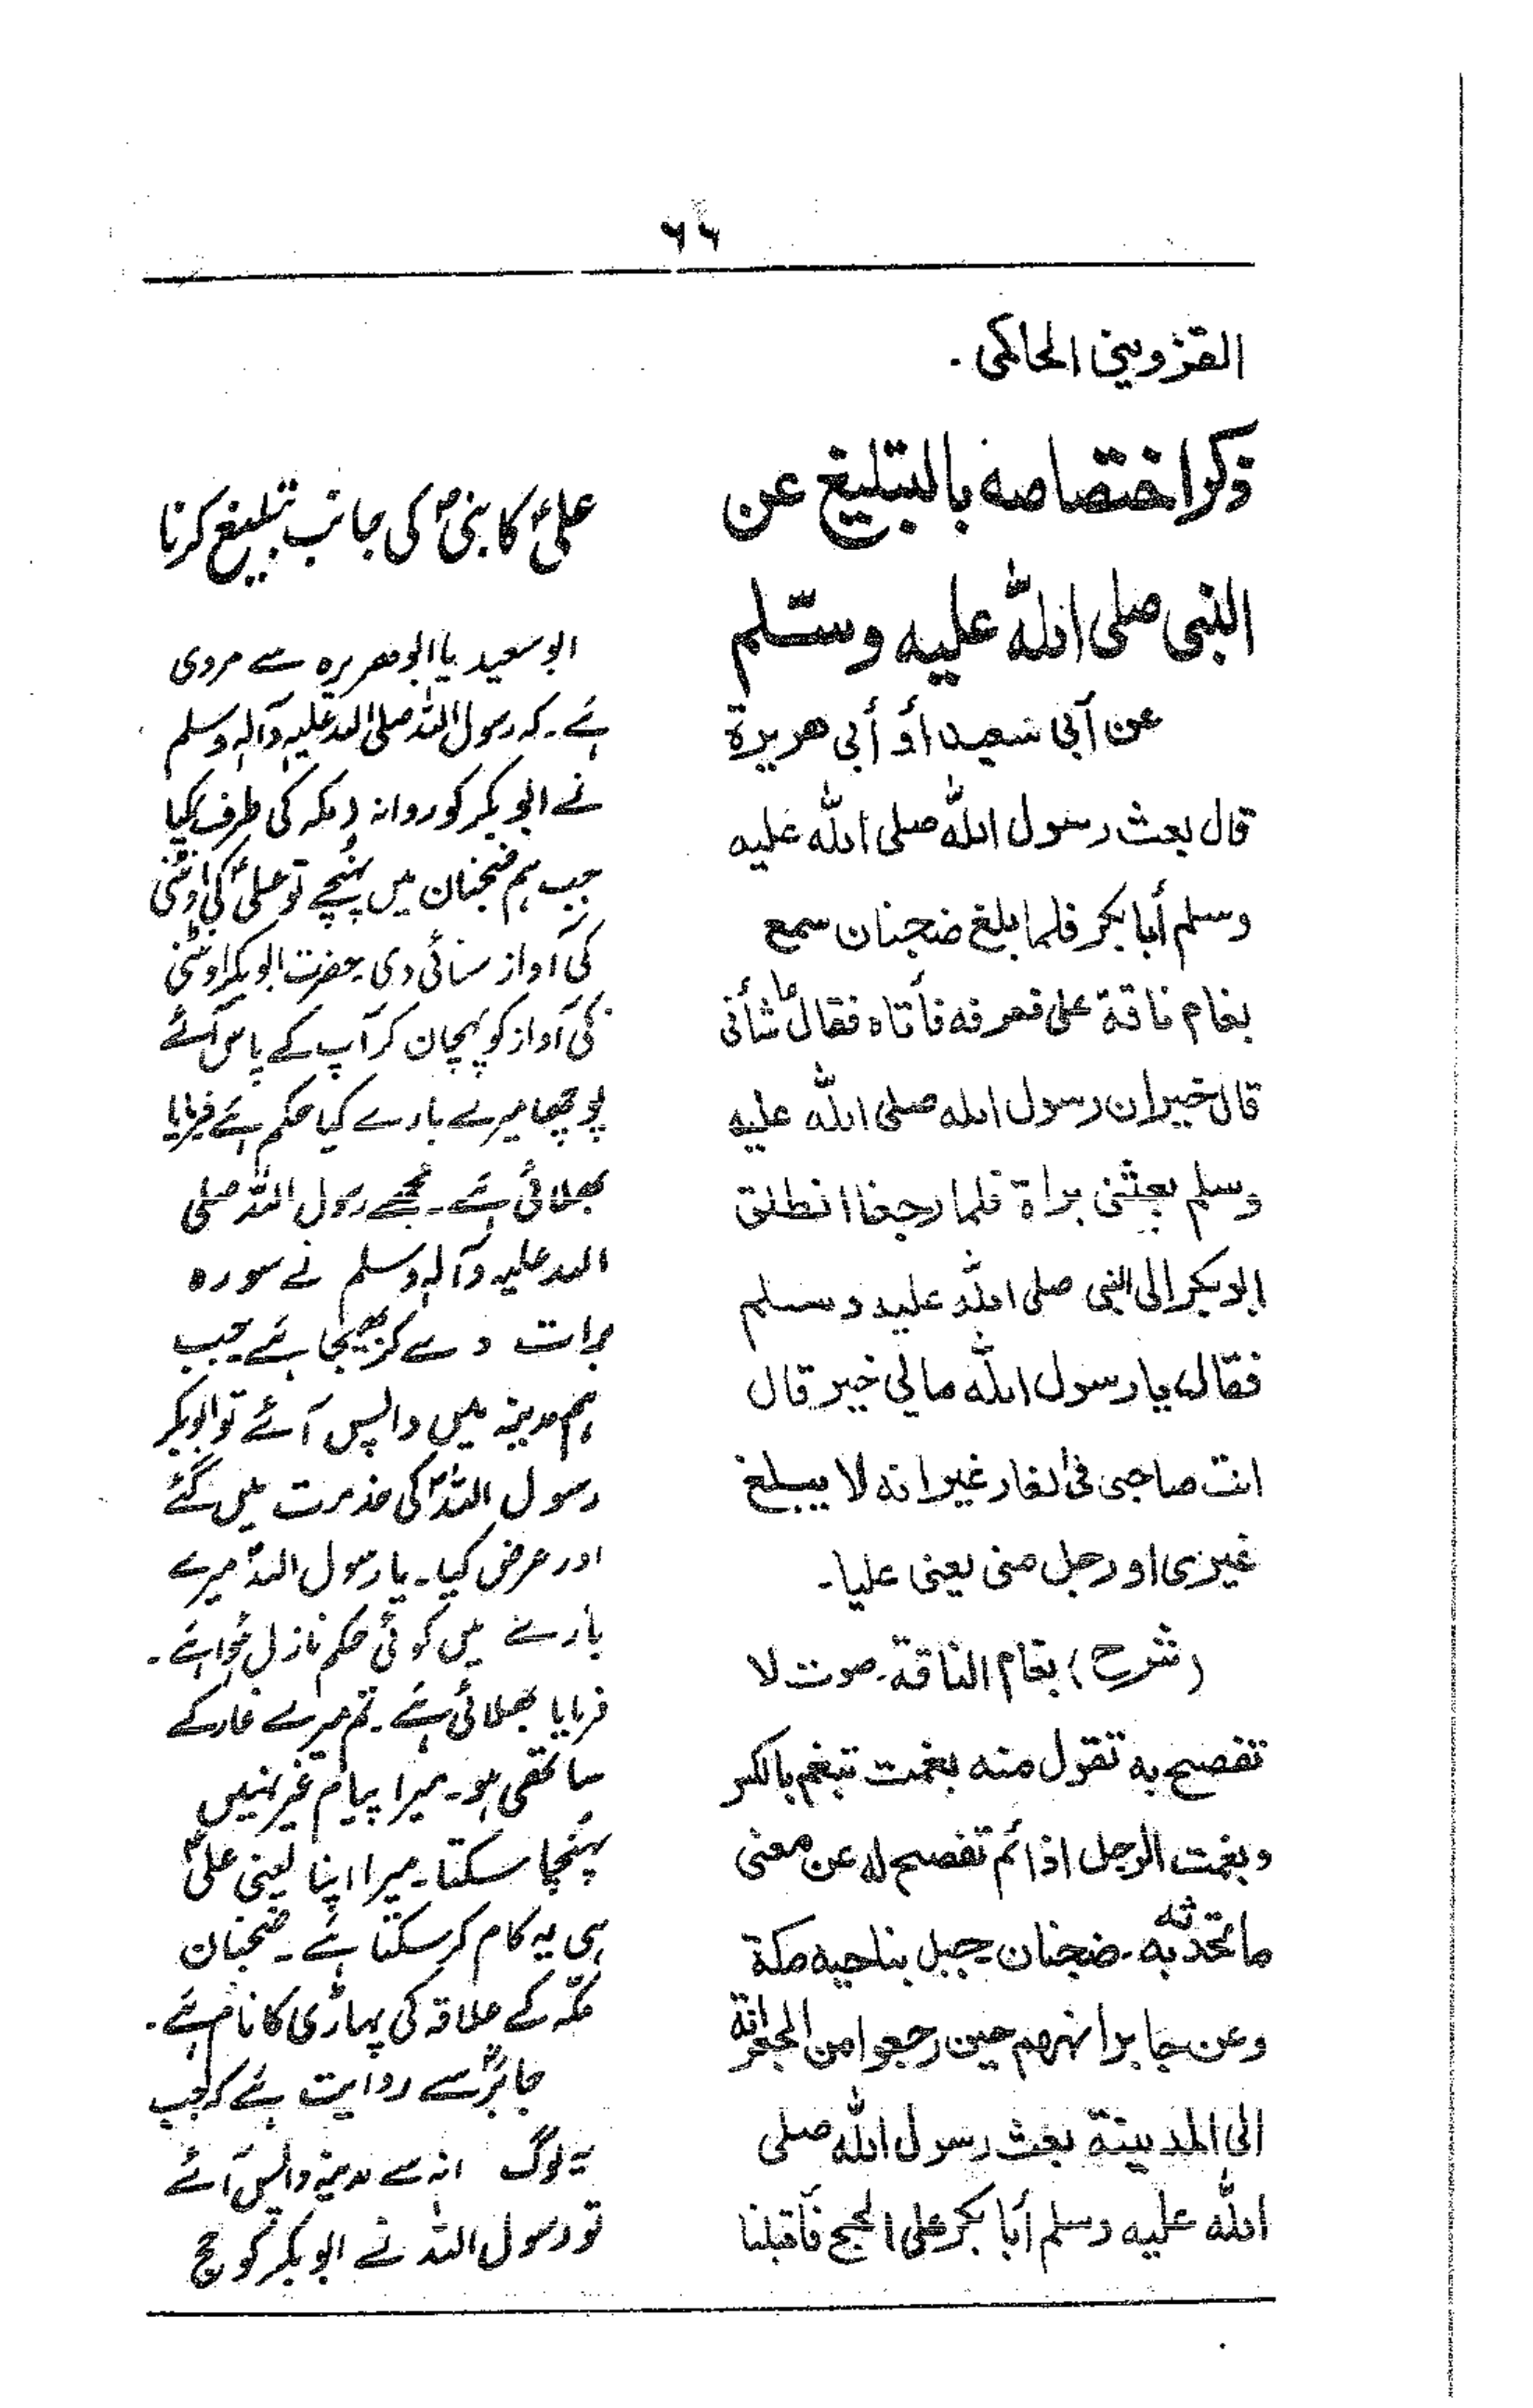 ۶۶
القزويني الحاكمى.
ذكر اختصاصه بالتبليغ عن
النبى صلى الله عليه وسلم
عن أبى سعيد أو أبى هريرة
قال بعث رسول الله صلى الله عليه
وسلم أبا بكر فلما بلغ ضجنان سمع
بغام ناقة على فعرفه فأتاه فقال ما شأنى
قال خير ان رسول الله صلى الله عليه
وسلم بعثنى براة فلما رجعنا انطلق
ابو بكر الى النبى صلى الله عليه وسلم
فقال يا رسول الله مالي خير قال
انت صاحبى فى الغار غير انه لا يبلغ
غيرى او رجل منى يعنى عليا۔
(شرح) بغام الناقة۔ صوت لا
تفصح به تقول منه بغمت تبغم بالكسر
وبغمت الرجل اذا لم تفصح له عن معنى
ما تحدثه به۔ ضجنان جبل بناحيه مكة
وعن جابر انهم حين رجعوا من الجعرانة
الى المدينة بعث رسول الله صلى
الله عليه وسلم أبا بكر على الحج فأقبلنا
علیؑ کا نبیؐ کی جانب تبلیغ کرنا
ابو سعید یا ابوھریرہ سے مروی
ہے۔ کہ رسول اللہ صلی اللہ علیہ وآلہ وسلم
نے ابوبکر کو روانہ (مکہ کی طرف) کیا
جب ہم ضجنان میں پہنچے تو علیؑ کی اونٹنی
کی آواز سنائی دی حضرت ابوبکر اونٹنی
کی آواز کو پہچان کر آپ کے پاس آئے
پوچھا میرے بارے کیا حکم ہے فرمایا
بھلائی ہے۔ مجھے رسول اللہ صلی
اللہ علیہ وآلہ وسلم نے سورہ
برات دے کر بھیجا ہے جب
ہم مدینہ میں واپس آئے تو ابوبکر
رسول اللہؐ کی خدمت میں گئے
اور عرض کیا۔ یا رسول اللہؐ میرے
بارے میں کوئی حکم نازل ہوا ہے۔
فرمایا بھلائی ہے۔ تم میرے غار کے
ساتھی ہو۔ میرا پیام غیر نہیں
پہنچا سکتا۔ میرا اپنا یعنی علیؑ
ہی یہ کام کر سکتا ہے۔ ضجنان
مکہ کے علاقہ کی پہاڑی کا نام ہے۔
جابرؓ سے روایت ہے کہ جب
یہ لوگ انہ سے مدینہ واپس آئے
تو رسول اللہ نے ابوبکر کو حج